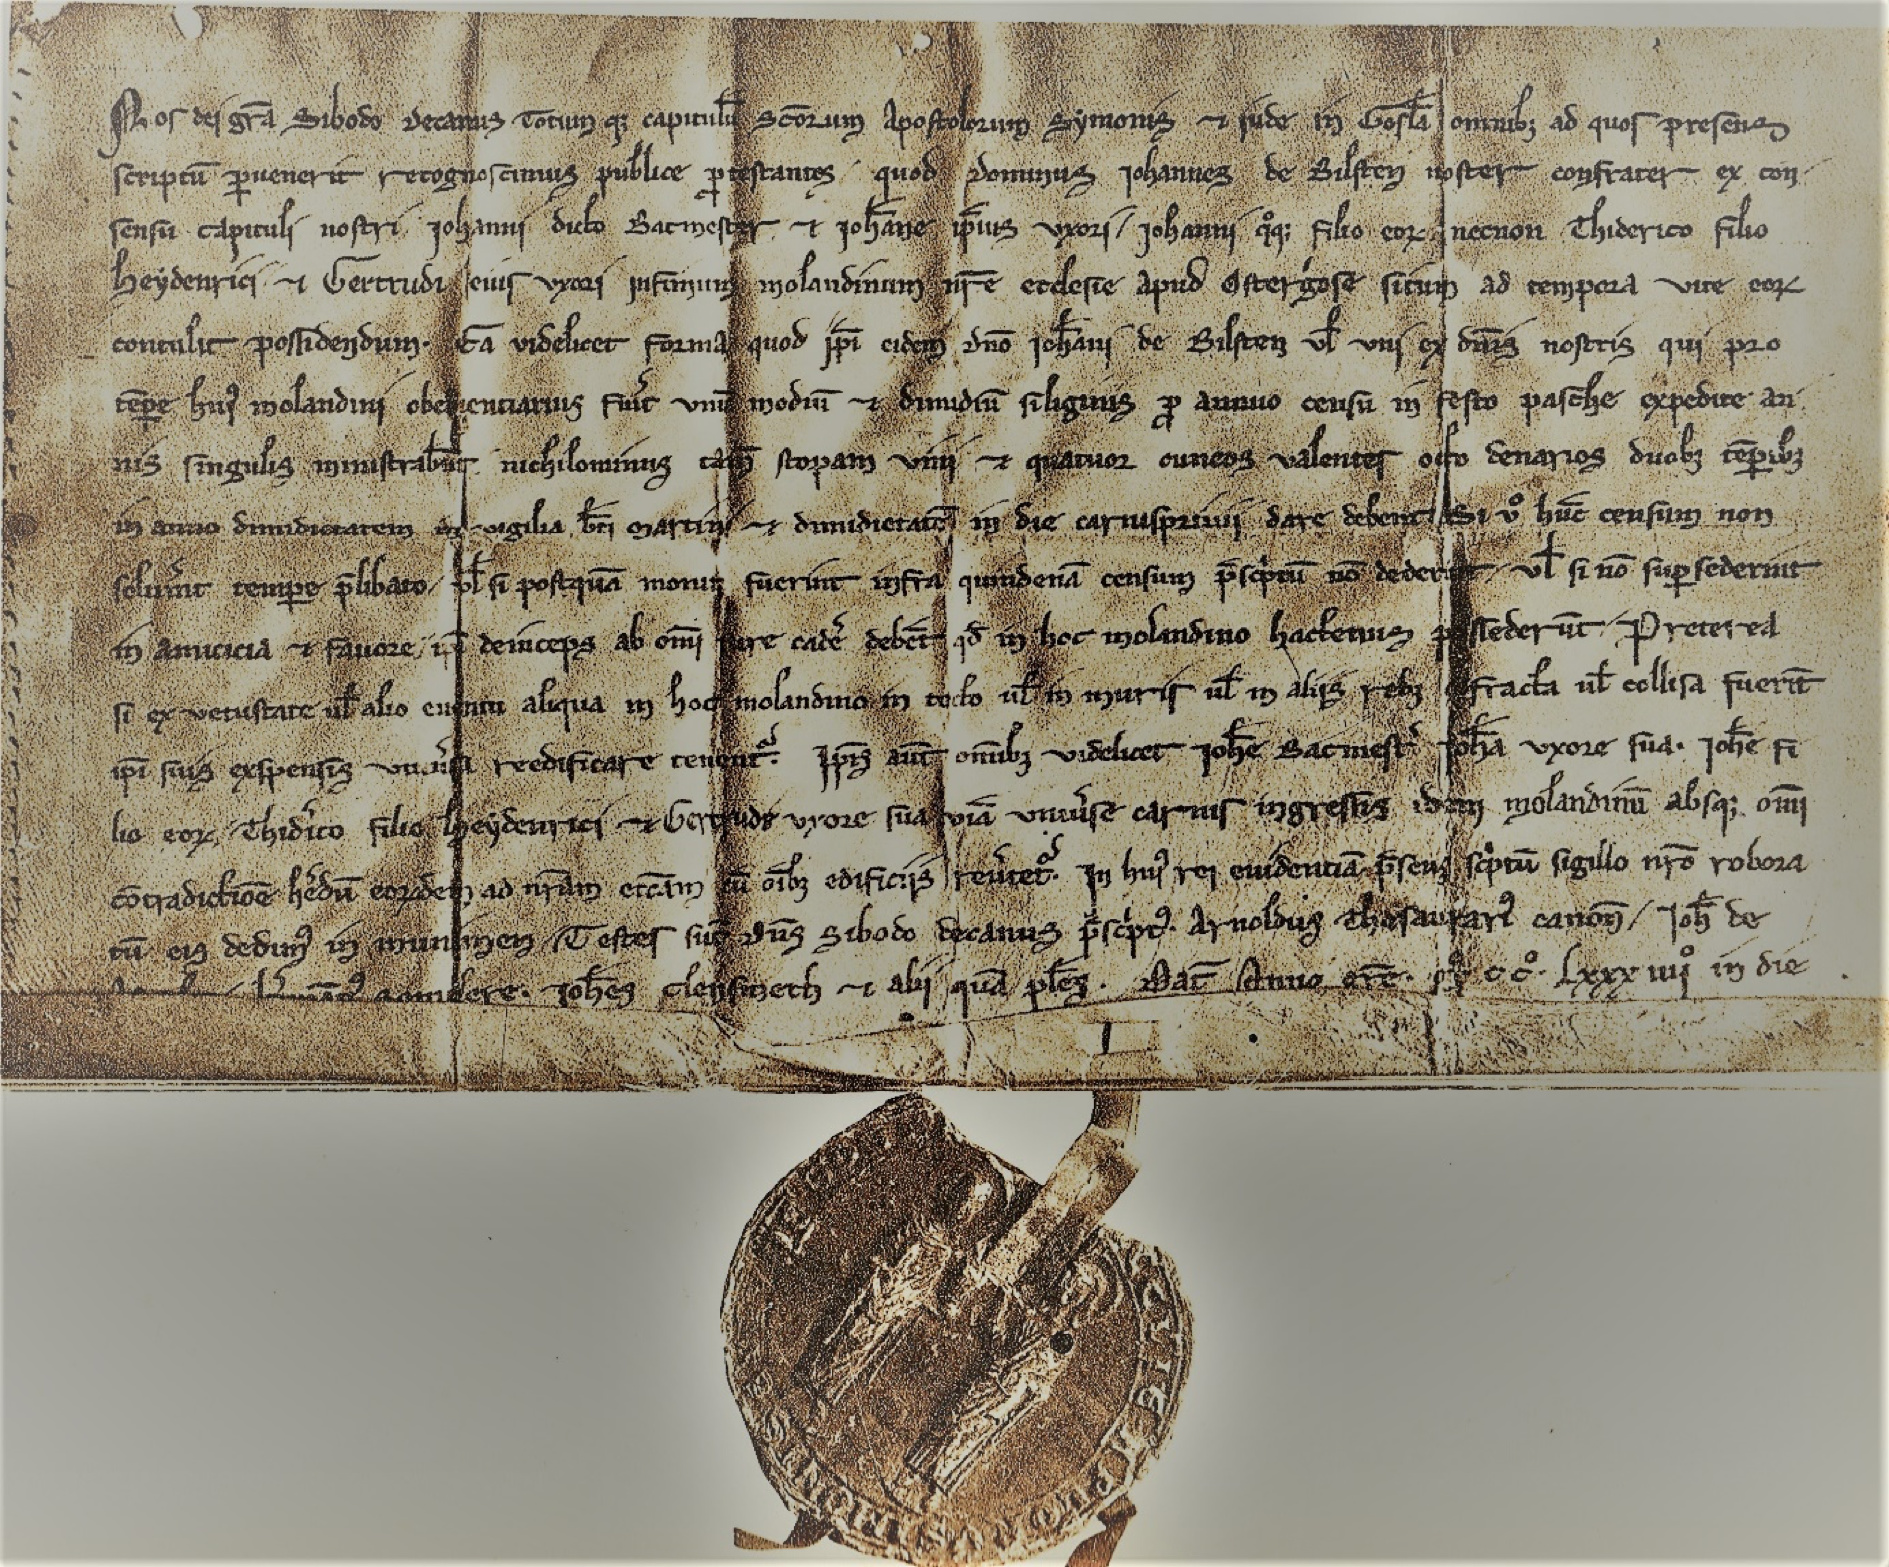 Nos dei gr̄a Sibodo decanus Totum q; capitulū Sc̄orum Apostolorum Symonis ⁊ iude in Gosl̄a omnib; ad quos presens
scriptū ꝑuenerit recognoscimus publice ꝓtestantes quod dominus Johannes de Bilsten noster confrater ex con
sensu capituli nostri Johanni dicto Bacmester ⁊ Joh̄ane ip̄ius vxori / Johanni qͦq; filio eoꝝ necnon Thiderico filio
Heydenrici ⁊ Gertrudi eius vxori infimum molandinum nr̄e ecclesie apud Ostergͥose situm ad tempora vite eoꝝ
contulit possidendum. Ea videlicet forma quod ip̄i eidem dn̄o Joh̄ani de Bilsten vl̄ vni ex dn̄is nostris qui pro
te̅ꝑe huiꝰ molandini obedientiarius fu̅it vnū modiū ⁊ dimidiū siliginis ꝓ annuo censu in festo pasche expedite an
nis singulis ministrabūt nichilominus tam̄ stopam vini ⁊ quatuor cuneos valentes octo denarios duob; te̅ꝑib;
in anno dimidietatem in vigilia b̄ti Martini ⁊ dimidietatē in die carnispriuii dare debent Si vͦ hūc censum non
solu̅int tempe p̄libato / vl̄ si postquā moniti fuerint infra quindenā censum p̄scͥptū nō dederint / vl̄ si nō suꝑsederint
in amicicia ⁊ fauore / ip̄i deinceps ab om̄i iure cade̅ debēt qd̄ in hoc molandino hactenus possederūt / Preterea
si ex vetustate vl̄ alio euentu aliqua in hoc molandino in tecto vl̄ in muris vl̄ in aliis reb; cōfracta vl̄ collisa fuerīt
ip̄i suis expensis vniu̅sa reedificare tenent᷑. Ip̄is aūt omīb; videlicet Joh̄e Bacmest̅ Joh̄a vxore sua. Joh̄e fi
lio eoꝝ Thid̅ico filio Heydenrici ⁊ Gertrude vxore sua viā vniu̅se carnis ingressis idem molandinū absq; om̄i
cōtradictiōe h̅edū eoꝝdem ad nr̄am ecc̄am cū oīb; edificiis reu̅tet᷑. In huiꝰ rei euidentiā p̄sens scͥptū sigillo nr̄o robora
tū eis dedimꝰ in munimen / Testes sūt dn̄s Sibodo decanus p̄scͥptꝰ. Arnoldus Thesaurariꝰ canon̄ / Joh̄ de
Joh̄es Clensmeth ⁊ alii quā pl̄es. Dat̄ Anno dn̄i. Mͦ. ccͦ. Lxxx iiiiͦ in die